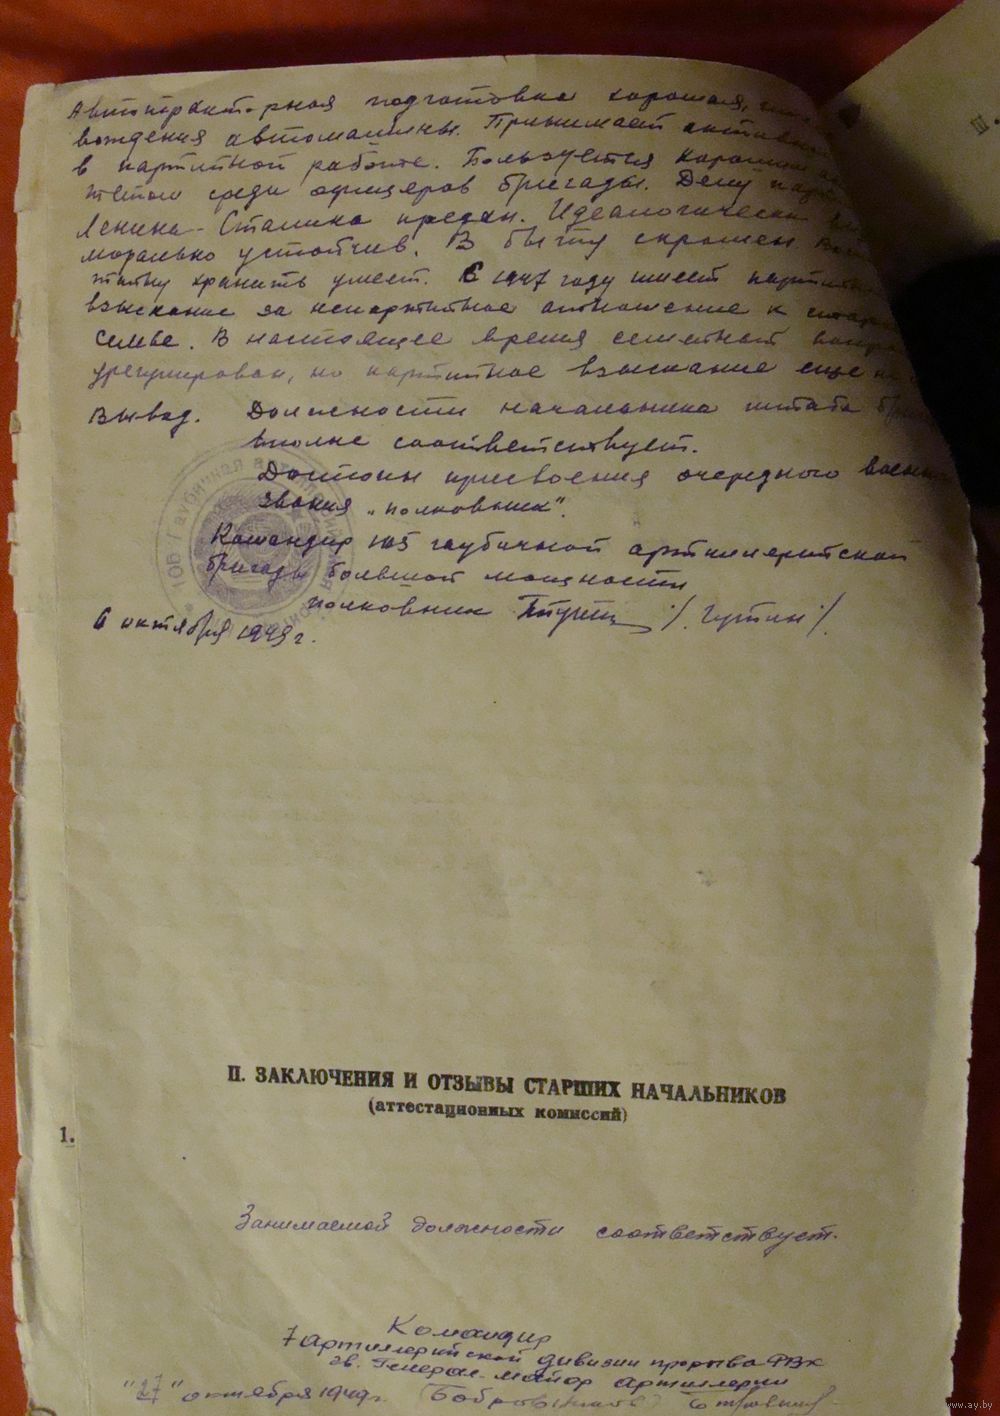 Автотракторная подготовка хорошая,
вождения автомашины. Принимает
в партийной работе. Пользуется хорошим
тетом среди офицеров бригады. Делу
Ленина-Сталина предан. Идеалогически
морально устойчив. В быту скромен.
хранить умеет. С 1947 году имеет
взыскание за непартийное отношение к
семье. В настоящее время семейный
урегулирован, но партийное взыскание еще не
Вывод. Должности начальника штаба
вполне соответствует.
Достоин присвоения очередного
звания „полковник".
Командир 105 гаубичной артиллерийской
бригады большой мощности
полковник /Гутин/
6 октября 1949 г.
II. ЗАКЛЮЧЕНИЯ И ОТЗЫВЫ СТАРШИХ НАЧАЛЬНИКОВ
(аттестационных комиссий)
1.
Занимаемой должности соответствует.
Командир
7 артиллерийской дивизии прорыва РВК
гв. Генерал-майор артиллерии
"27" октября 1949 г.
www.ay.by